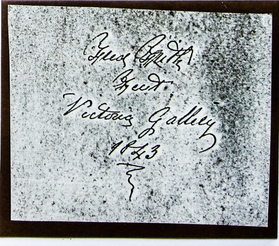 Fred Smith
Invt.
Victoria Gallery
1843